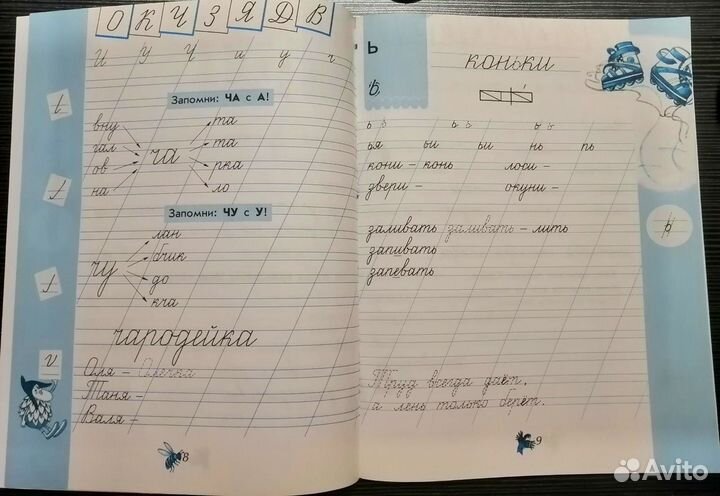 О К Ч З Я Д В
И У Ч и у ч
Запомни: ЧА с А!
вну
гал
ов
на
ча
та
та
рка
ло
Запомни: ЧУ с У!
чу
лан
бчик
до
кча
чародейка
Оля – Олечка
Таня –
Валя –
8
ь
коньки
ь
ь ь ь ь ь ь
ья ьи ьи нь пь
кони – конь лоси –
двери – окуни –
заливать заливать – лить
запивать
запевать
Труд всегда даёт,
а лень только берёт.
9
Avito